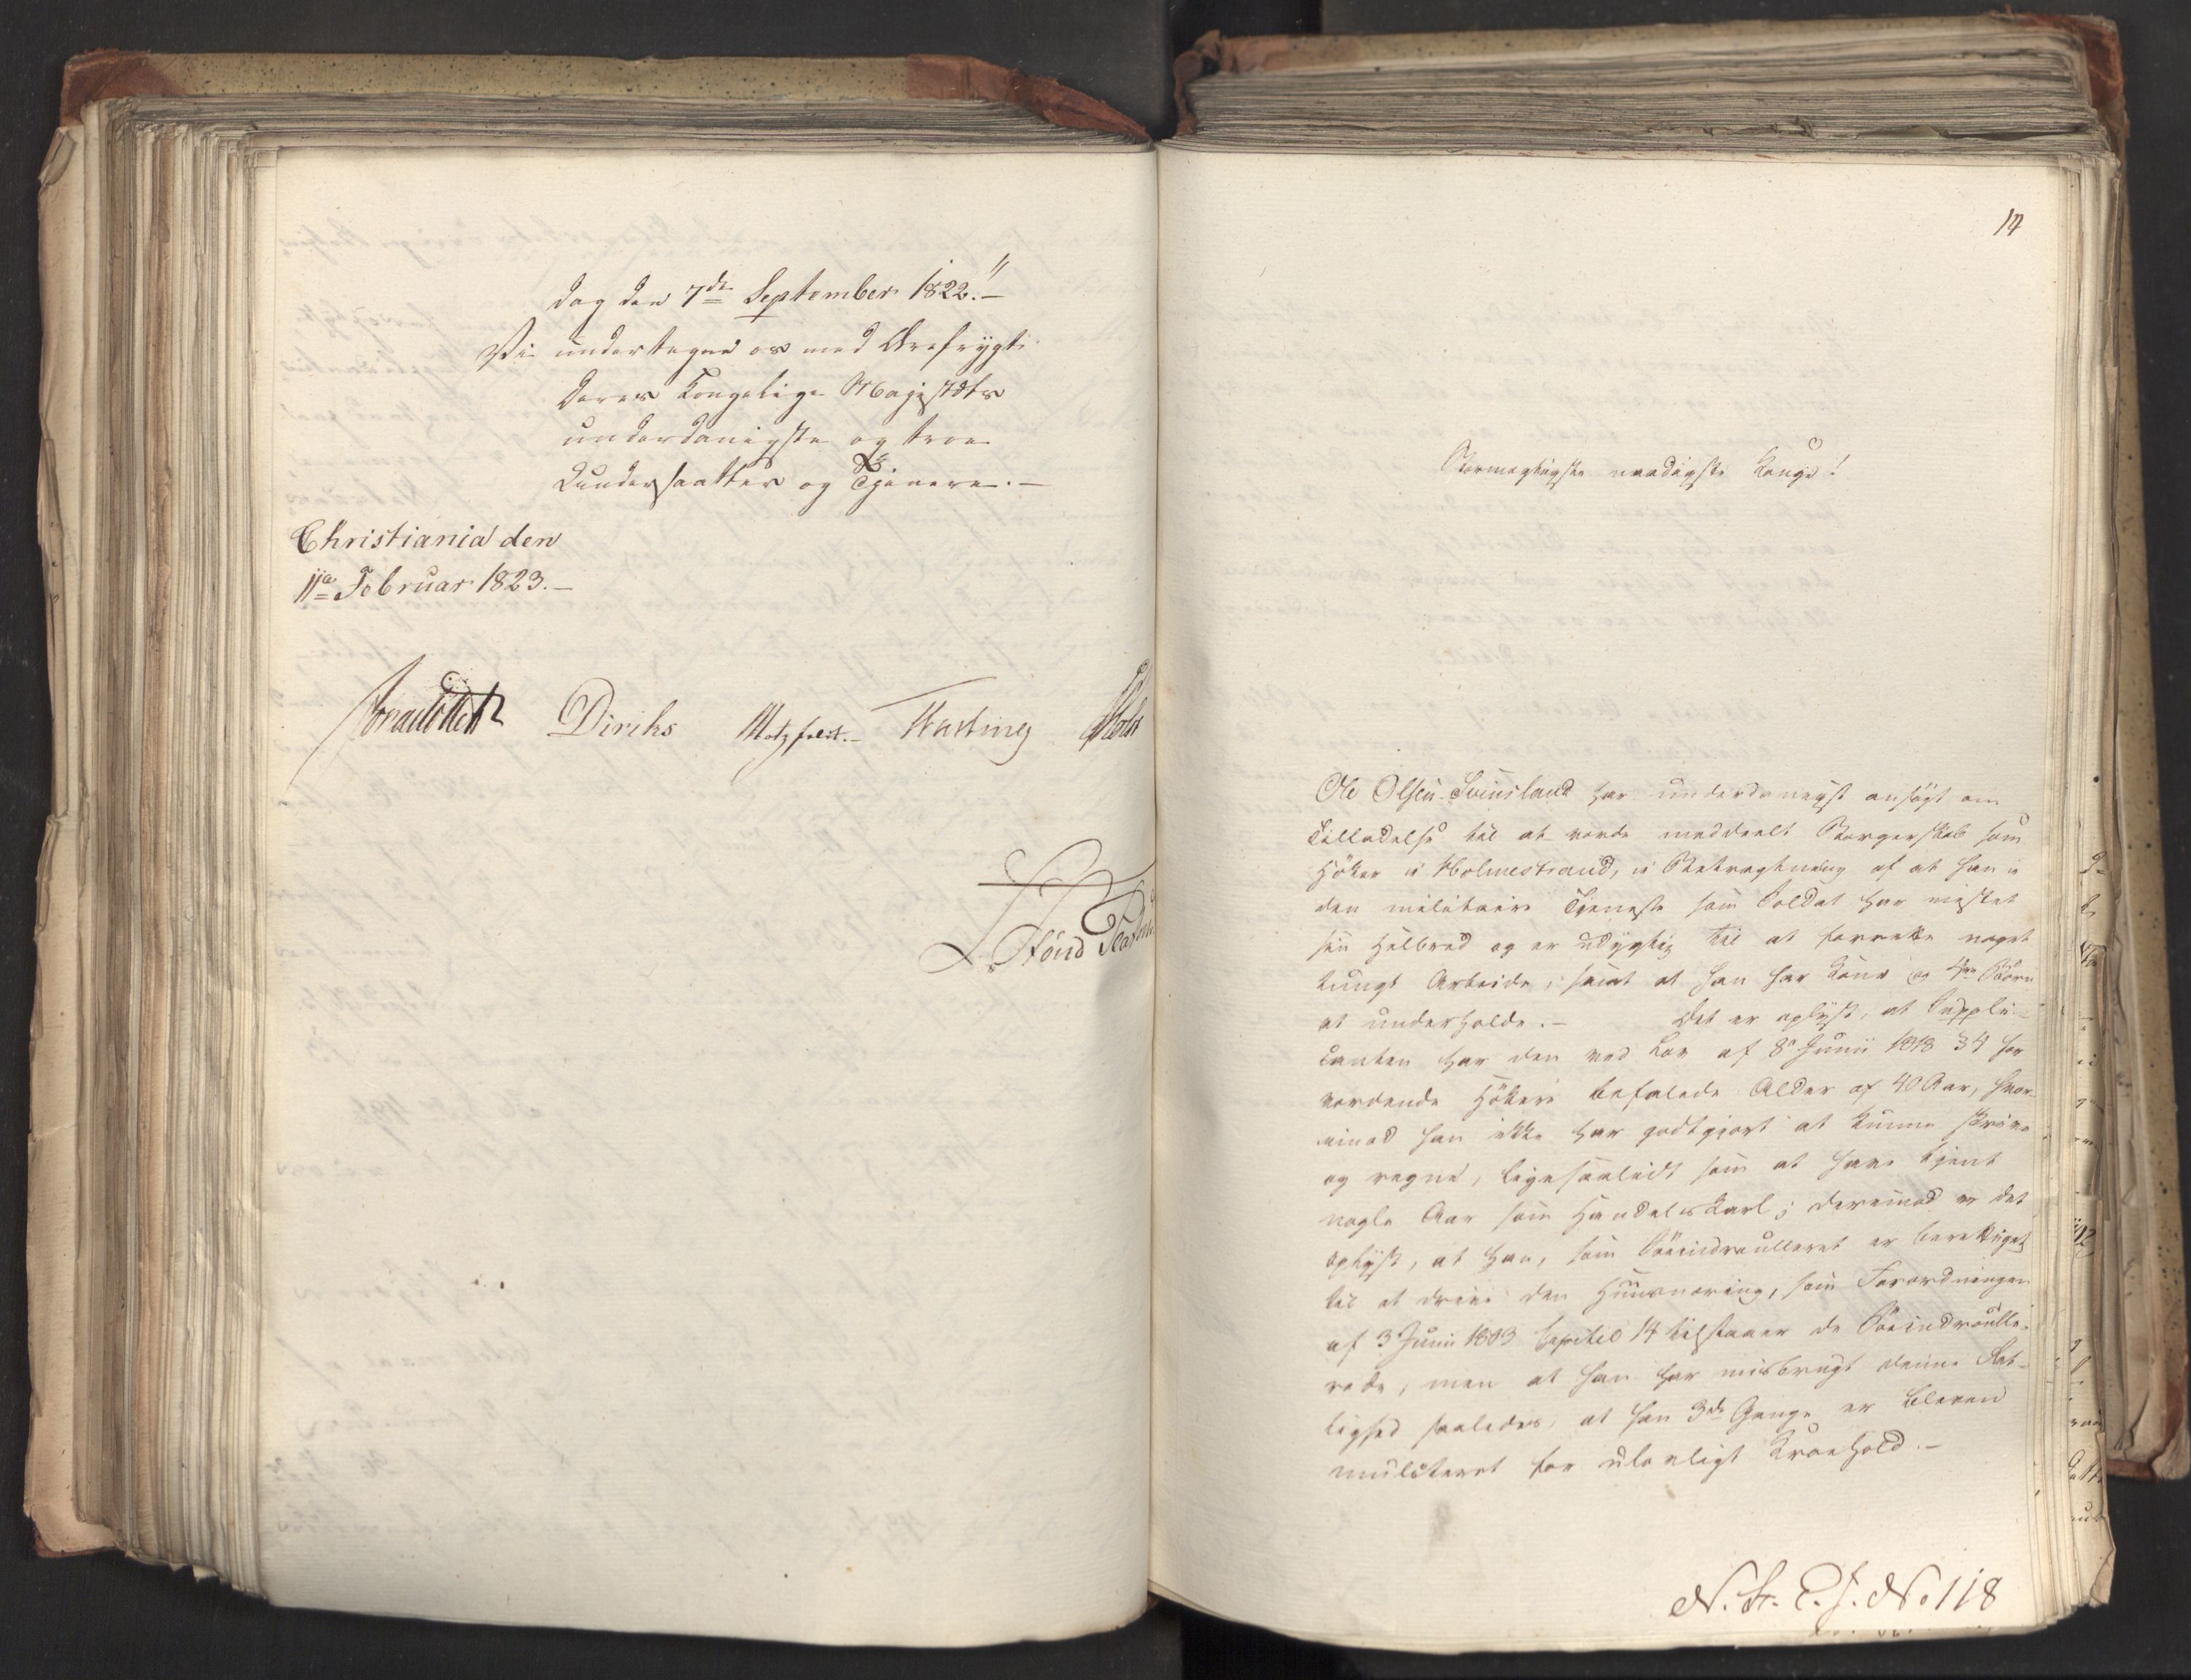 dag den 7de September 1822."
Vi undertegne os med Ærefrygt:
Deres Kongelige Majestæts
underdanigste og troe
Undersaatter og Tjenere.
Christiania den
11te Februar 1823.
Diriks Motzfeldt. Fasting Holst
14
Stormægtigste naadigste Konge!
Ole Olsen Svinsland har underdanigst ansøgt om
Tilladelse til at vorde meddeelt Borgerskab som
Höker i Holmestrand, i Betragtning af at han i
den militaire Tjeneste som Soldat har mistet
sin Helbred og er udygtig til at forrette noget
tungt Arbeide, samt at han har Kone og 4re Børn
at underholde. – Det er oplyst, at Suppli-
canten har den ved Lov af 8de Junii 1818 § 4 for
vordende Hökere befalede Alder af 40 Aar, hvor-
imod han ikke har godtgjort at kunne skrive
og regne, ligesaalidt som at have tjent
nogle Aar som Handelskarl; derimod er det
oplyst, at han, som Söeindroulleret er berettiget
til at drive den Huusnæring, som Forordningen
af 3 Junii 1803 Capitel 14 tilstaaer de Söeindroulle-
rede, men at han har misbrugt denne Ret-
tighed saaledes, at han 3de Gange er bleven
mulcteret for ulovligt Kroehold. –
N. St. E. J. No 118